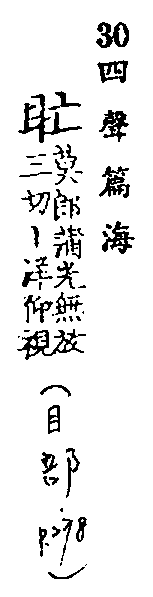 30四聲篇海
盳
莫郎蒲光無放
三切丨洋仰視
(目部